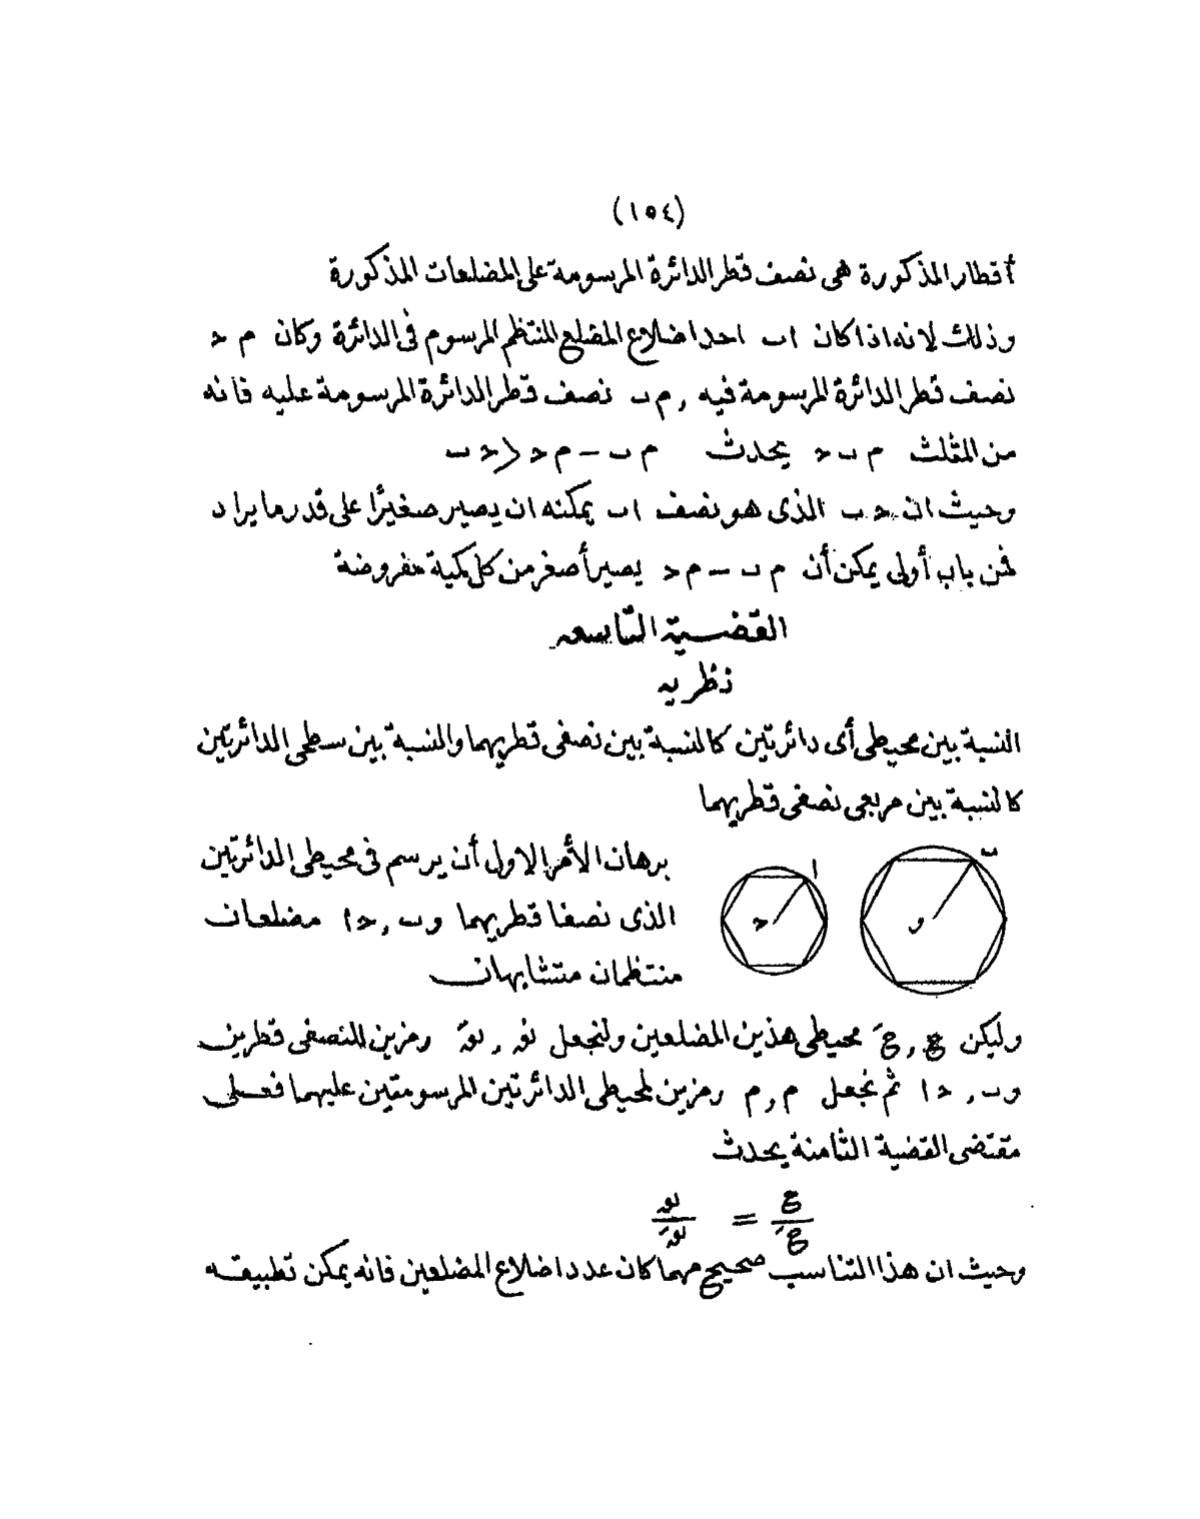 (١٥٤)
أقطار المذكورة هى نصف قطر الدائرة المرسومة على المضلعات المذكورة
وذلك لانه اذا كان اب احد اضلاع المضلع المنتظم المرسوم فى الدائرة وكان م د
نصف قطر الدائرة المرسومة فيه , م ب نصف قطر الدائرة المرسومة عليه فانه
من المثلث م ب د يحدث م ب - م د < د ب
وحيث ان د ب الذى هو نصف اب يمكنه ان يصير صغيرًا على قدر ما يراد
فمن باب أولى يمكن أن م ب - م د يصير أصغر من كل كمية مفروضة
القضية التاسعه
نظريه
النسبة بين محيطى أى دائرتين كالنسبة بين نصفى قطريهما والنسبة بين سطحى الدائرتين
كالنسبة بين مربعى نصفى قطريهما
ب
ا
و
د
برهان الأمر الاول أن يرسم فى محيطى الدائرتين
الذى نصفا قطريهما وب , دا مضلعان
منتظمان متشابهان
وليكن ع , عَ محيطى هذين المضلعين ولنجعل نق , نقَ رمزين للنصفى قطرين
وب , دا ثم نجعل م , م رمزين لمحيطى الدائرتين المرسومتين عليهما فعلى
مقتضى القضية الثامنة يحدث
ع/عَ = نق/نقَ
وحيث ان هذا التناسب صحيح مهما كان عدد اضلاع المضلعين فانه يمكن تطبيقه